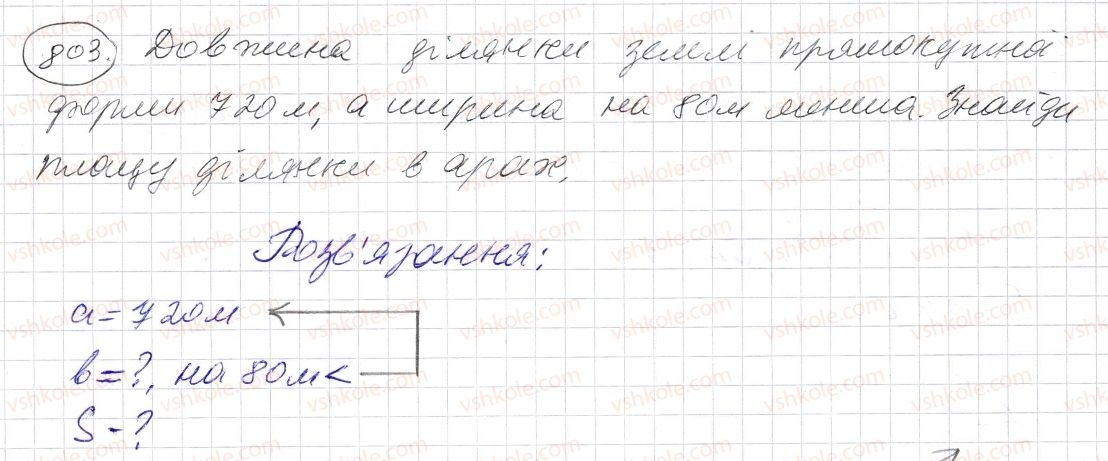 803. Довжина ділянки землі прямокутної
форми 720 м, а ширина на 80м менша. Знайди
площу ділянки в арах.
Розв'язання:
a = 720м
b = ?, на 80м <
S - ?